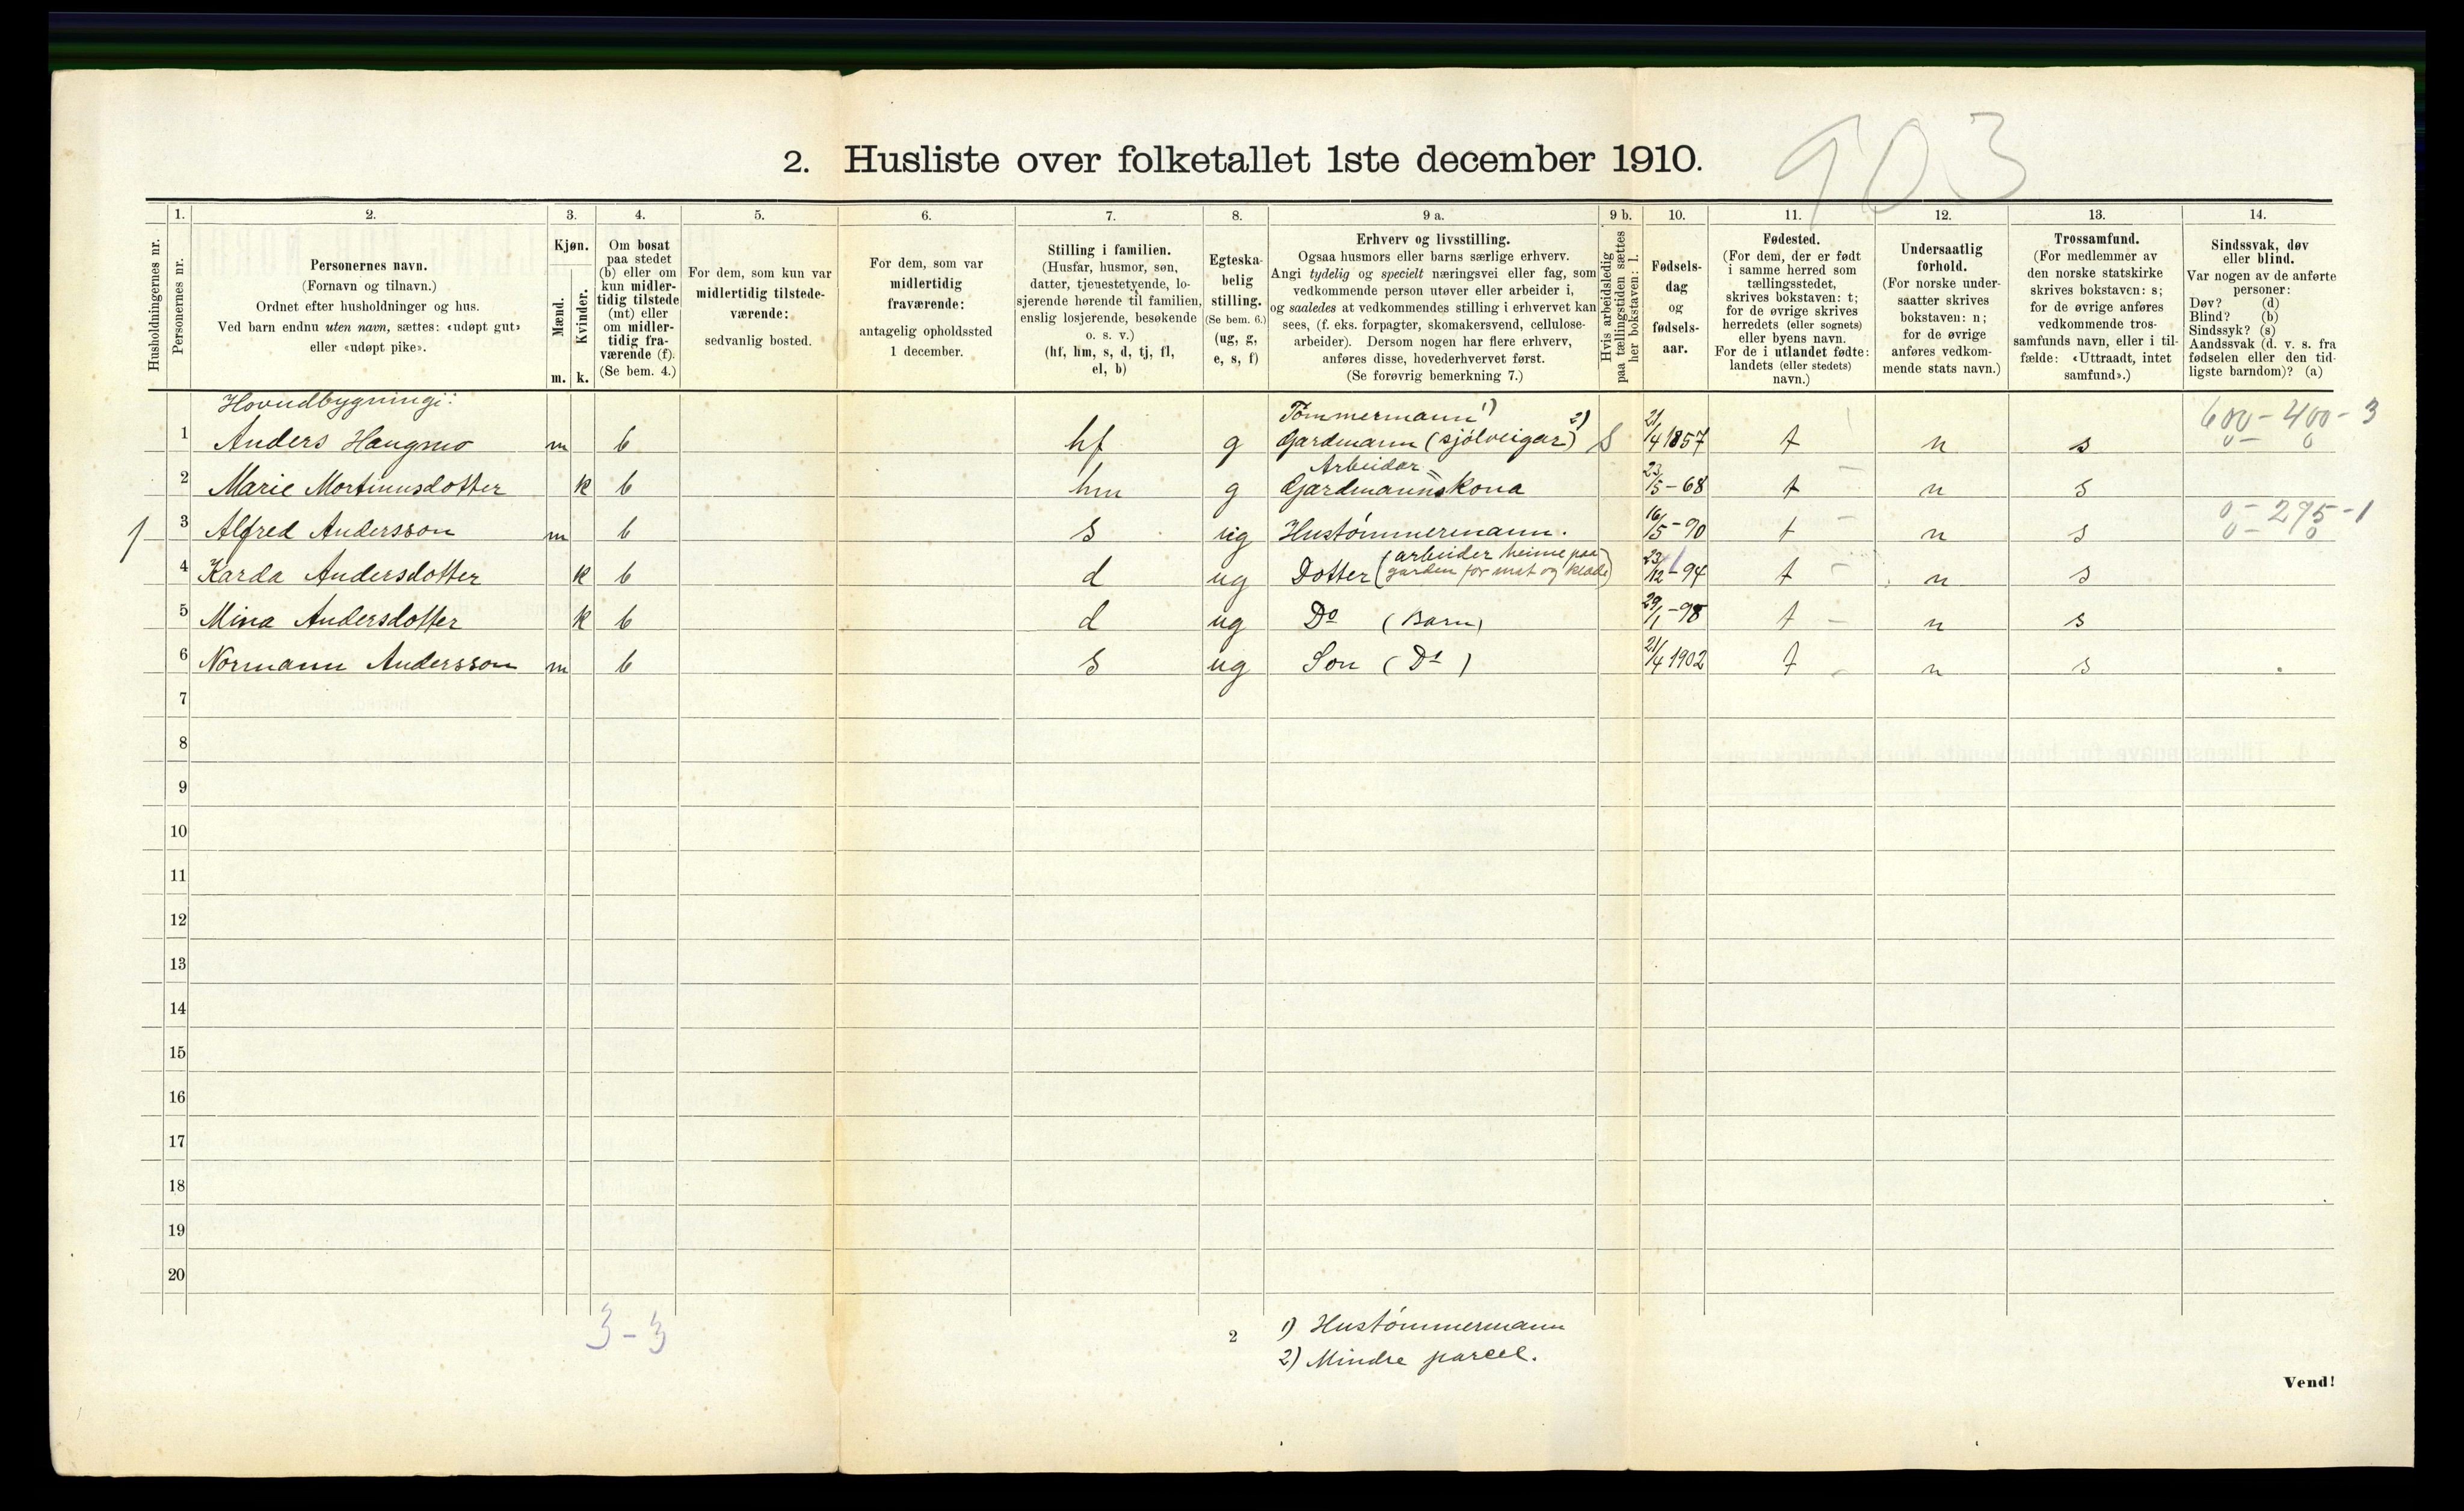 903
2. Husliste over folketallet 1ste december 1910.
Husholdningernes nr.
1.
Personernes nr.
2.
Personernes navn.
(Fornavn og tilnavn.)
Ordnet efter husholdninger og hus.
Ved barn endnu uten navn, sættes: «udøpt gut»
eller «udøpt pike».
3.
Kjøn.
Mænd.
m.
Kvinder.
k.
4.
Om bosat
paa stedet
(b) eller om
kun midler-
tidig tilstede
(mt) eller
om midler-
tidig fra-
værende (f).
(Se bem. 4.)
5.
For dem, som kun var
midlertidig tilstede-
værende:
sedvanlig bosted.
6.
For dem, som var
midlertidig
fraværende:
antagelig opholdssted
1 december.
7.
Stilling i familien.
(Husfar, husmor, søn,
datter, tjenestetyende, lo-
sjerende hørende til familien,
enslig losjerende, besøkende
o. s. v.)
(hf, hm, s, d, tj, fl,
el, b)
8.
Egteska-
belig
stilling.
(Se bem. 6.)
(ug, g,
e, s, f)
9 a.
Erhverv og livsstilling.
Ogsaa husmors eller barns særlige erhverv.
Angi tydelig og specielt næringsvei eller fag, som
vedkommende person utøver eller arbeider i,
og saaledes at vedkommendes stilling i erhvervet kan
sees, (f. eks. forpagter, skomakersvend, cellulose-
arbeider). Dersom nogen har flere erhverv,
anføres disse, hovederhvervet først.
(Se forøvrig bemerkning 7.)
9 b.
Hvis arbeidsledig
paa tællingstiden sættes
her bokstaven: l.
10.
Fødsels-
dag
og
fødsels-
aar.
11.
Fødested.
(For dem, der er født
i samme herred som
tællingsstedet,
skrives bokstaven: t;
for de øvrige skrives
herredets (eller sognets)
eller byens navn.
For de i utlandet fødte:
landets (eller stedets)
navn.)
12.
Undersaatlig
forhold.
(For norske under-
saatter skrives
bokstaven: n;
for de øvrige
anføres vedkom-
mende stats navn.)
13.
Trossamfund.
(For medlemmer av
den norske statskirke
skrives bokstaven: s;
for de øvrige anføres
vedkommende tros-
samfunds navn, eller i til-
fælde: «Uttraadt, intet
samfund».)
14.
Sindssvak, døv
eller blind.
Var nogen av de anførte
personer:
Døv? (d)
Blind? (b)
Sindssyk? (s)
Aandssvak (d. v. s. fra
fødselen eller den tid-
ligste barndom)? (a)
Hovudbygningi:
Tømmermann 1) 2) 600 - 400 - 3
1 Anders Haugmo m b hf g Gardmann (sjølveigar) S 21/4 1857 t n s 0 - 0
Arbeidar
2 Marie Mortinusdotter k b hm g Gardmannskona 23/5 - 68 t n s
0 - 295 - 1
1 3 Alfred Andersson m b s ug Hustømmermann. 16/5 - 90 t n s 0 - 0
(arbeider heime paa
4 Karda Andersdotter k b d ug Dotter garden for mat og klæde) 23/12 - 94 t n s
5 Mina Andersdotter k b d ug Do (Barn) 29/1 - 98 t n s
6 Normann Andersson m b s ug Son (Do) 21/4 1902 t n s
7
8
9
10
11
12
13
14
15
16
17
18
19
20
3 - 3
2
1) Hustømmermann
2) Mindre parcel.
Vend!